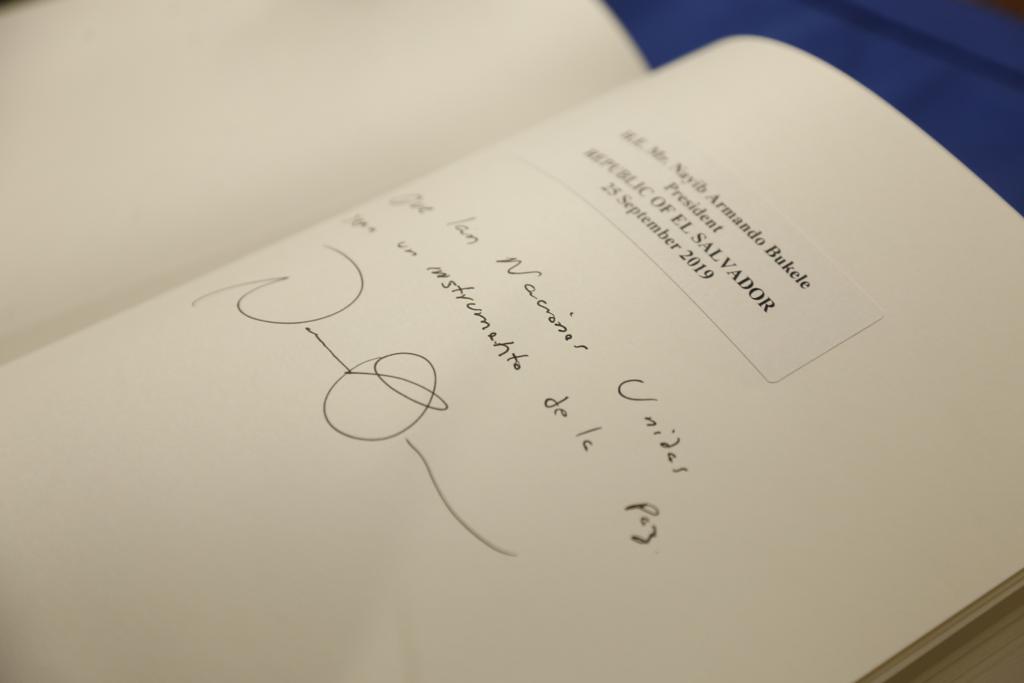 H.E. Mr. Nayib Armando Bukele
President
REPUBLIC OF EL SALVADOR
25 September 2019
Que las Naciones Unidas
sean un instrumento de la paz